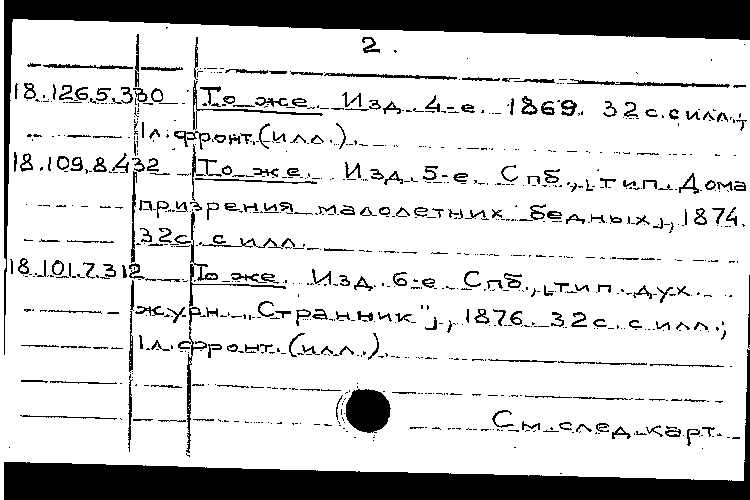 2.
18.126.5.330 То же. Изд. 4-е. 1869. 32с. с илл.;
1л. фронт. (илл.).
18.109.8.432 То же. Изд. 5-е. Спб., [тип. Дома
призрения малолетних бедных], 1874.
32с. с илл.
18.101.7.312 То же. Изд. 6-е. Спб., [тип. дух.
журн. „Странник"], 1876. 32с. с илл.;
1л. фронт. (илл.).
См. след. карт.